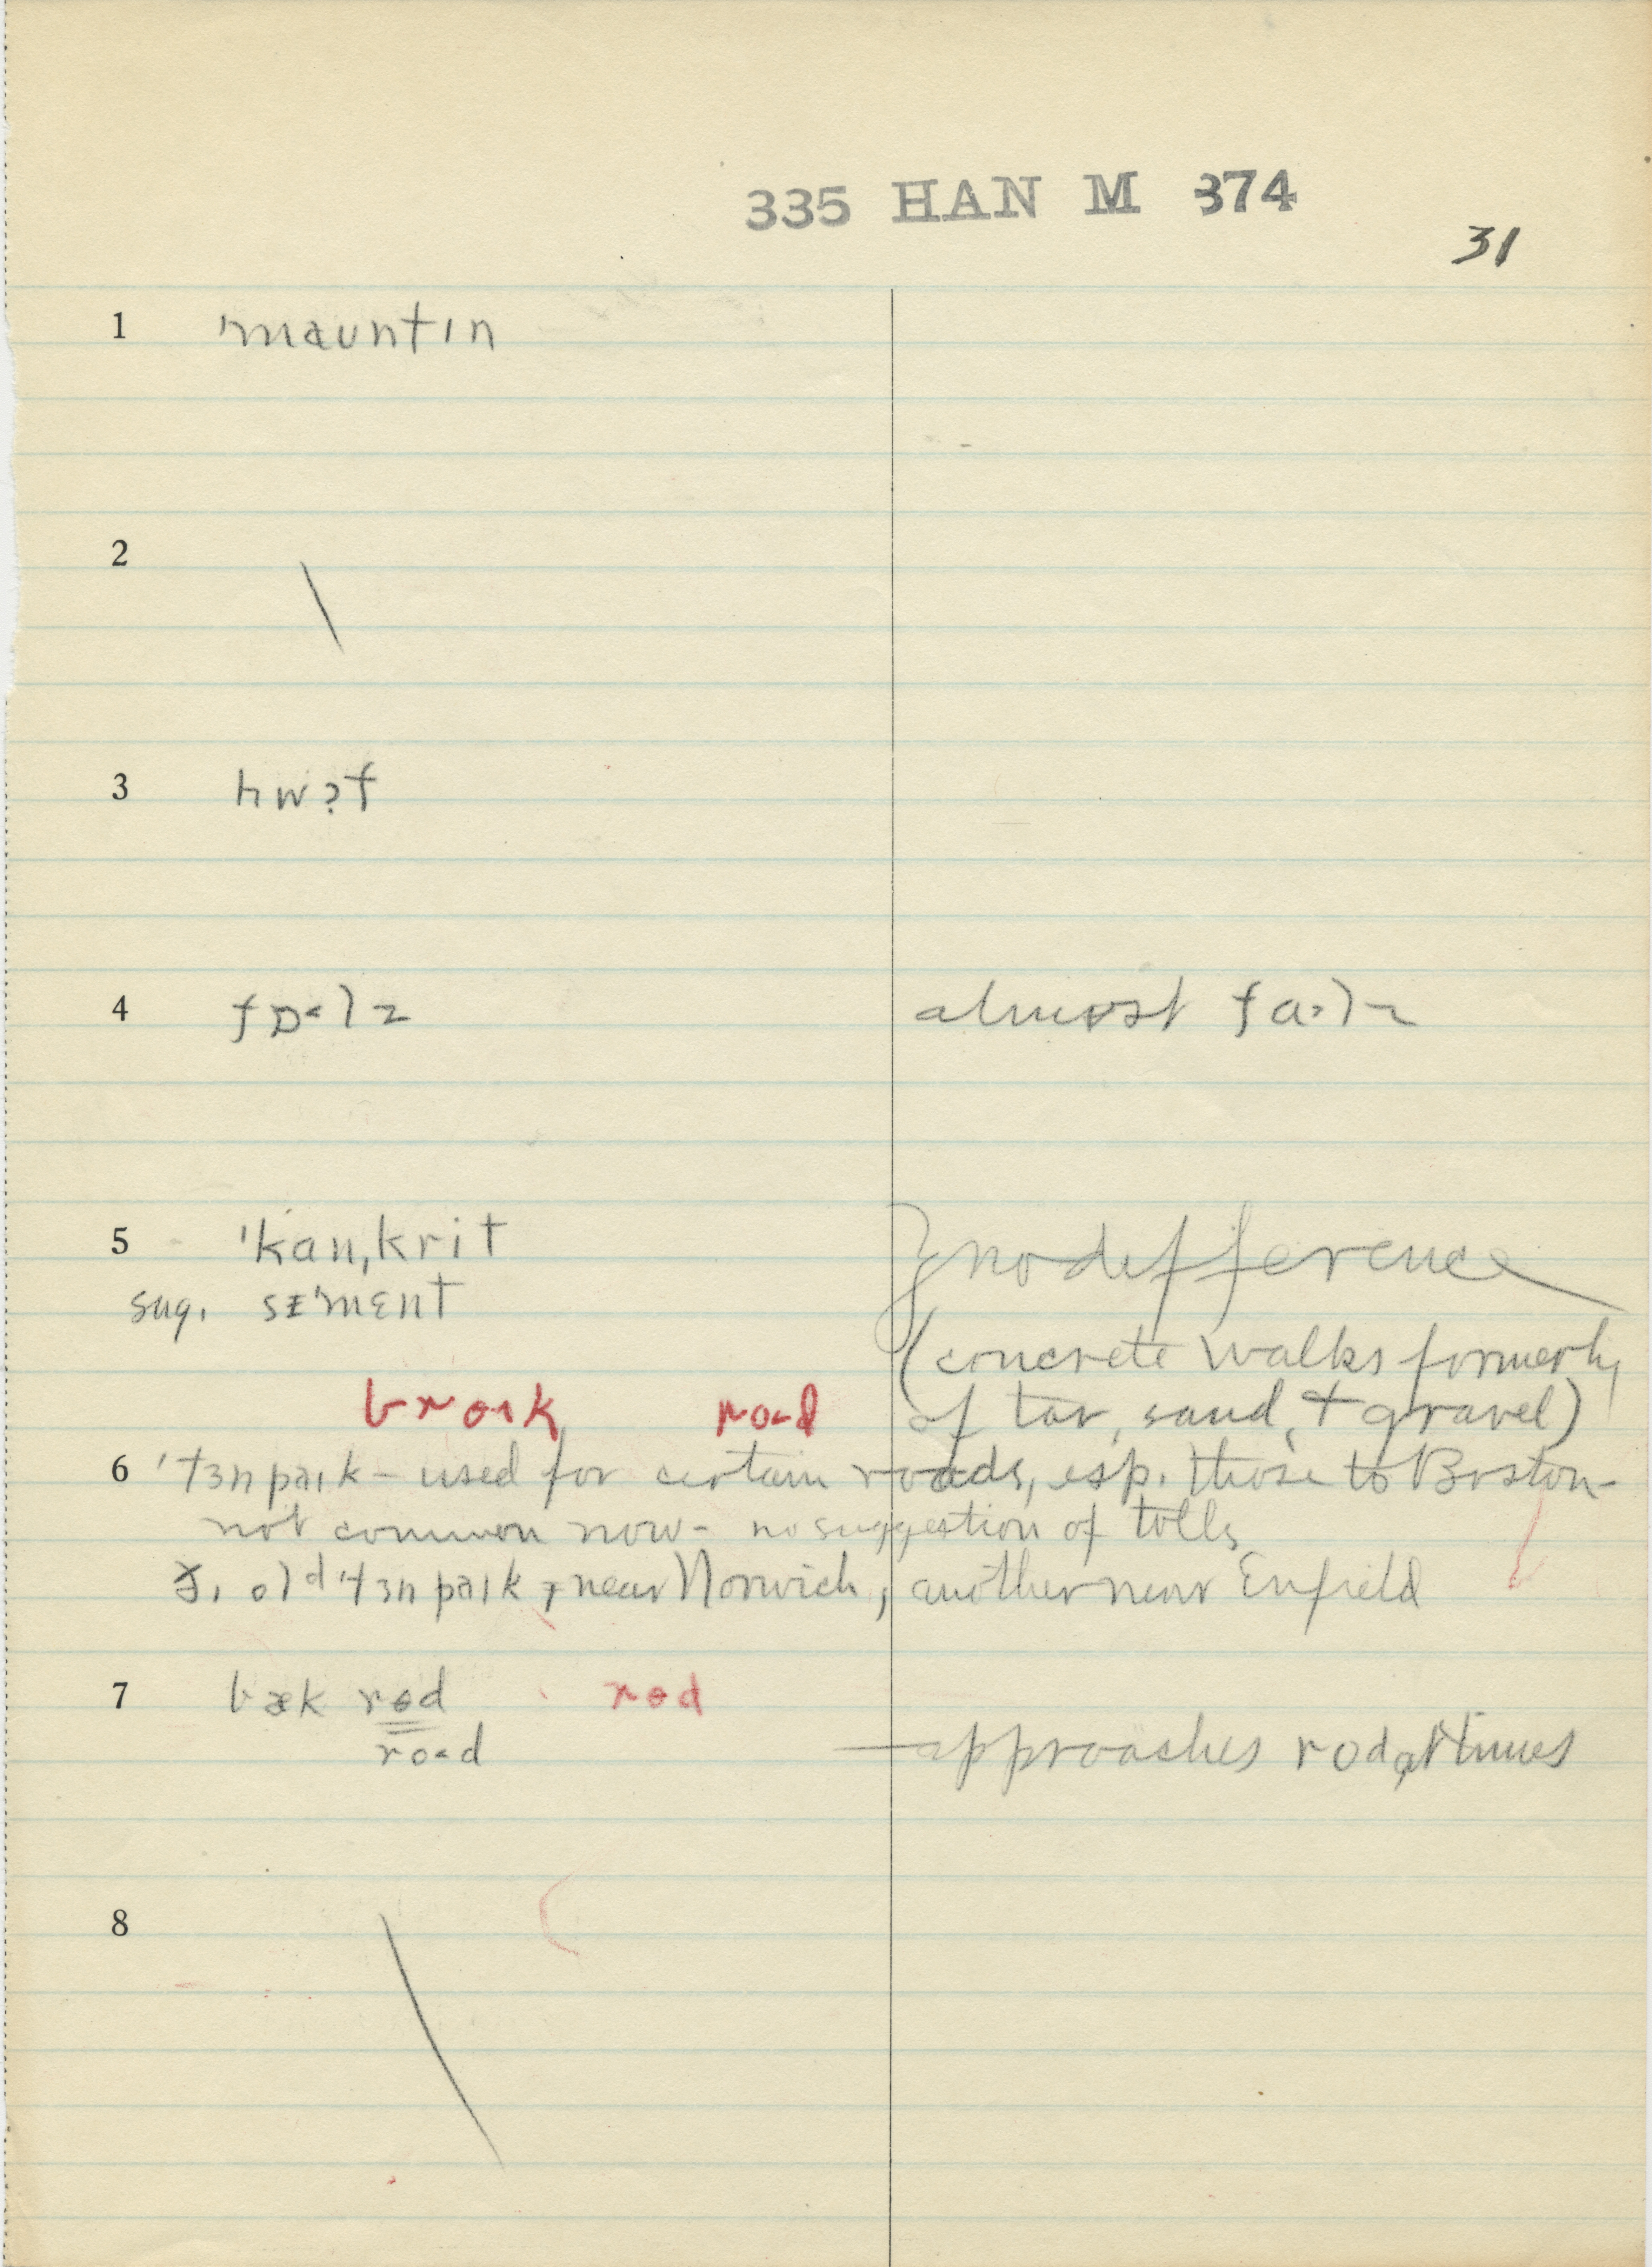 335 HAN M 374
31
1 'maʊntɪn
2
3 hwɔt
4 fɒ˂lz almost fa˃lz
5 'kan,krit } no difference
sug. sɪ'mɛnt
(concrete walks formerly
of tar, sand, + gravel)
ro˂d
6 'tɜnpaɪk – used for certain roads, esp. those to Boston –
not common now – no suggestion of tolls
old 'tɜnpaɪk, near Norwich, another near Enfield
7 bæk rɵd rɵd
ro˂d — approaches rod at times
8